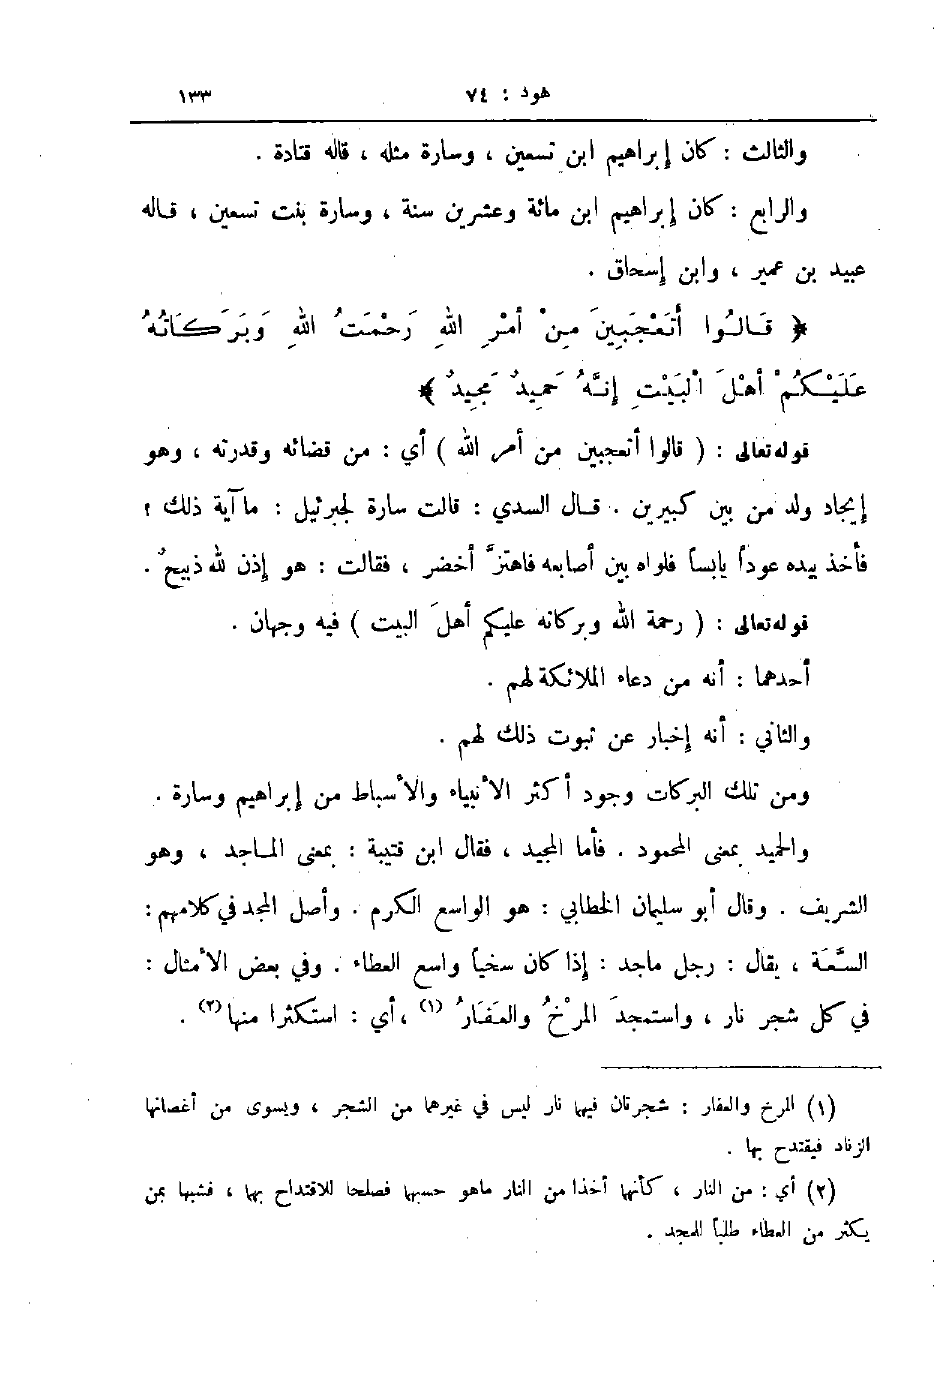 هود : ٧٤ ١٣٣
والثالث : كان إبراهيم ابن تسعين ، وسارة مثله ، قاله قتادة .
والرابع : كان إبراهيم ابن مائة وعشرين سنة ، وسارة بنت تسعين ، قاله
عبيد بن عمير ، وابن إسحاق .
﴿ قَالُوا أَتَعْجَبِينَ مِنْ أَمْرِ اللهِ رَحْمَتُ اللهِ وَبَرَكَاتُهُ
عَلَيْكُمْ أَهْلَ الْبَيْتِ إِنَّهُ حَمِيدٌ مَجِيدٌ ﴾
قوله تعالى : ( قالوا أتعجبين من أمر الله ) أي : من قضائه وقدرته ، وهو
إيجاد ولد من بين كبيرين . قال السدي : قالت سارة لجبرئيل : ما آية ذلك ؟
فأخذ بيده عوداً يابساً فلواه بين أصابعه فاهتزَّ أخضر ، فقالت : هو إذن لله ذبيحٌ .
قوله تعالى : ( رحمة الله وبركاته عليكم أهلَ البيت ) فيه وجهان .
أحدهما : أنه من دعاء الملائكة لهم .
والثاني : أنه إخبار عن ثبوت ذلك لهم .
ومن تلك البركات وجود أكثر الأنبياء والأسباط من إبراهيم وسارة .
والحميد بمعنى المحمود . فأما المجيد ، فقال ابن قتيبة : بمعنى الماجد ، وهو
الشريف . وقال أبو سليمان الخطابي : هو الواسع الكرم . وأصل المجد في كلامهم :
السَّعَة ، يقال : رجل ماجد : إذا كان سخياً واسع العطاء . وفي بعض الأمثال :
في كل شجر نار ، واستمجدَ المرْخُ والعَفَارُ (١) ، أي : استكثرا منها(٢) .
(١) المرخ والعفار : شجرتان فيها نار ليس في غيرهما من الشجر ، ويسوى من أغصانها
الزناد فيقتدح بها .
(٢) أي : من النار ، كأنها أخذا من النار ماهو حسبها فصلحا للاقتداح بها ، فشبها بمن
يكثر من العطاء طلباً للمجد .